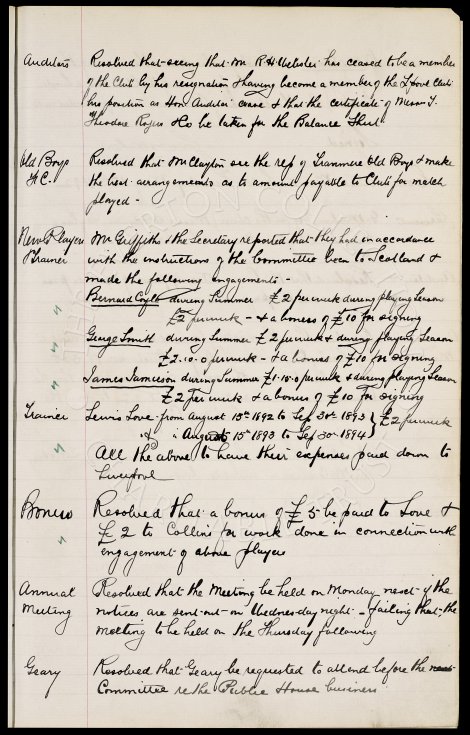 Auditors Resolved that seeing that Mr R.H. Webster has ceased to be a member
of the Club by his resignation & having become a member of the L'pool Club
his position as Hon Auditor cease & that the certificate of Messrs T.
Theodore Rogers & Co be taken for the Balance Sheet
Old Boys F.C. Resolved that Mr Clayton see the rep of Tranmere Old Boys & make
the best arrangements as to amount payable to Club for match
played -
New Players & Trainer Mr Griffiths & the Secretary reported that they had in accordance
with the instructions of the Committee been to Scotland &
made the following engagements -
Bernard Coyle during Summer £2 per week during playing Season
£2 per week - & a bonus of £10 for signing
George Smith during Summer £2 per week & during playing Season
£2.10.0 per week - & a bonus of £10 for signing
James Jamieson during Summer £1.10.0 per week & during playing Season
£2 per week & a bonus of £10 for signing
Trainer Lewis Love from August 15th 1892 to Sep 30th 1893 } £2 per week
& : August 15th 1893 to Sep 30th 1894 }
All the above to have their expenses paid down to
Liverpool
Bonus Resolved that a bonus of £5 be paid to Love &
£2 to Collins for work done in connection with
engagement of above players
Annual Meeting Resolved that the Meeting be held on Monday next if the
notices are sent out on Wednesday night - failing that the
meeting to be held on the Thursday following
Geary Resolved that Geary be requested to attend before the next
Committee re the Public House business